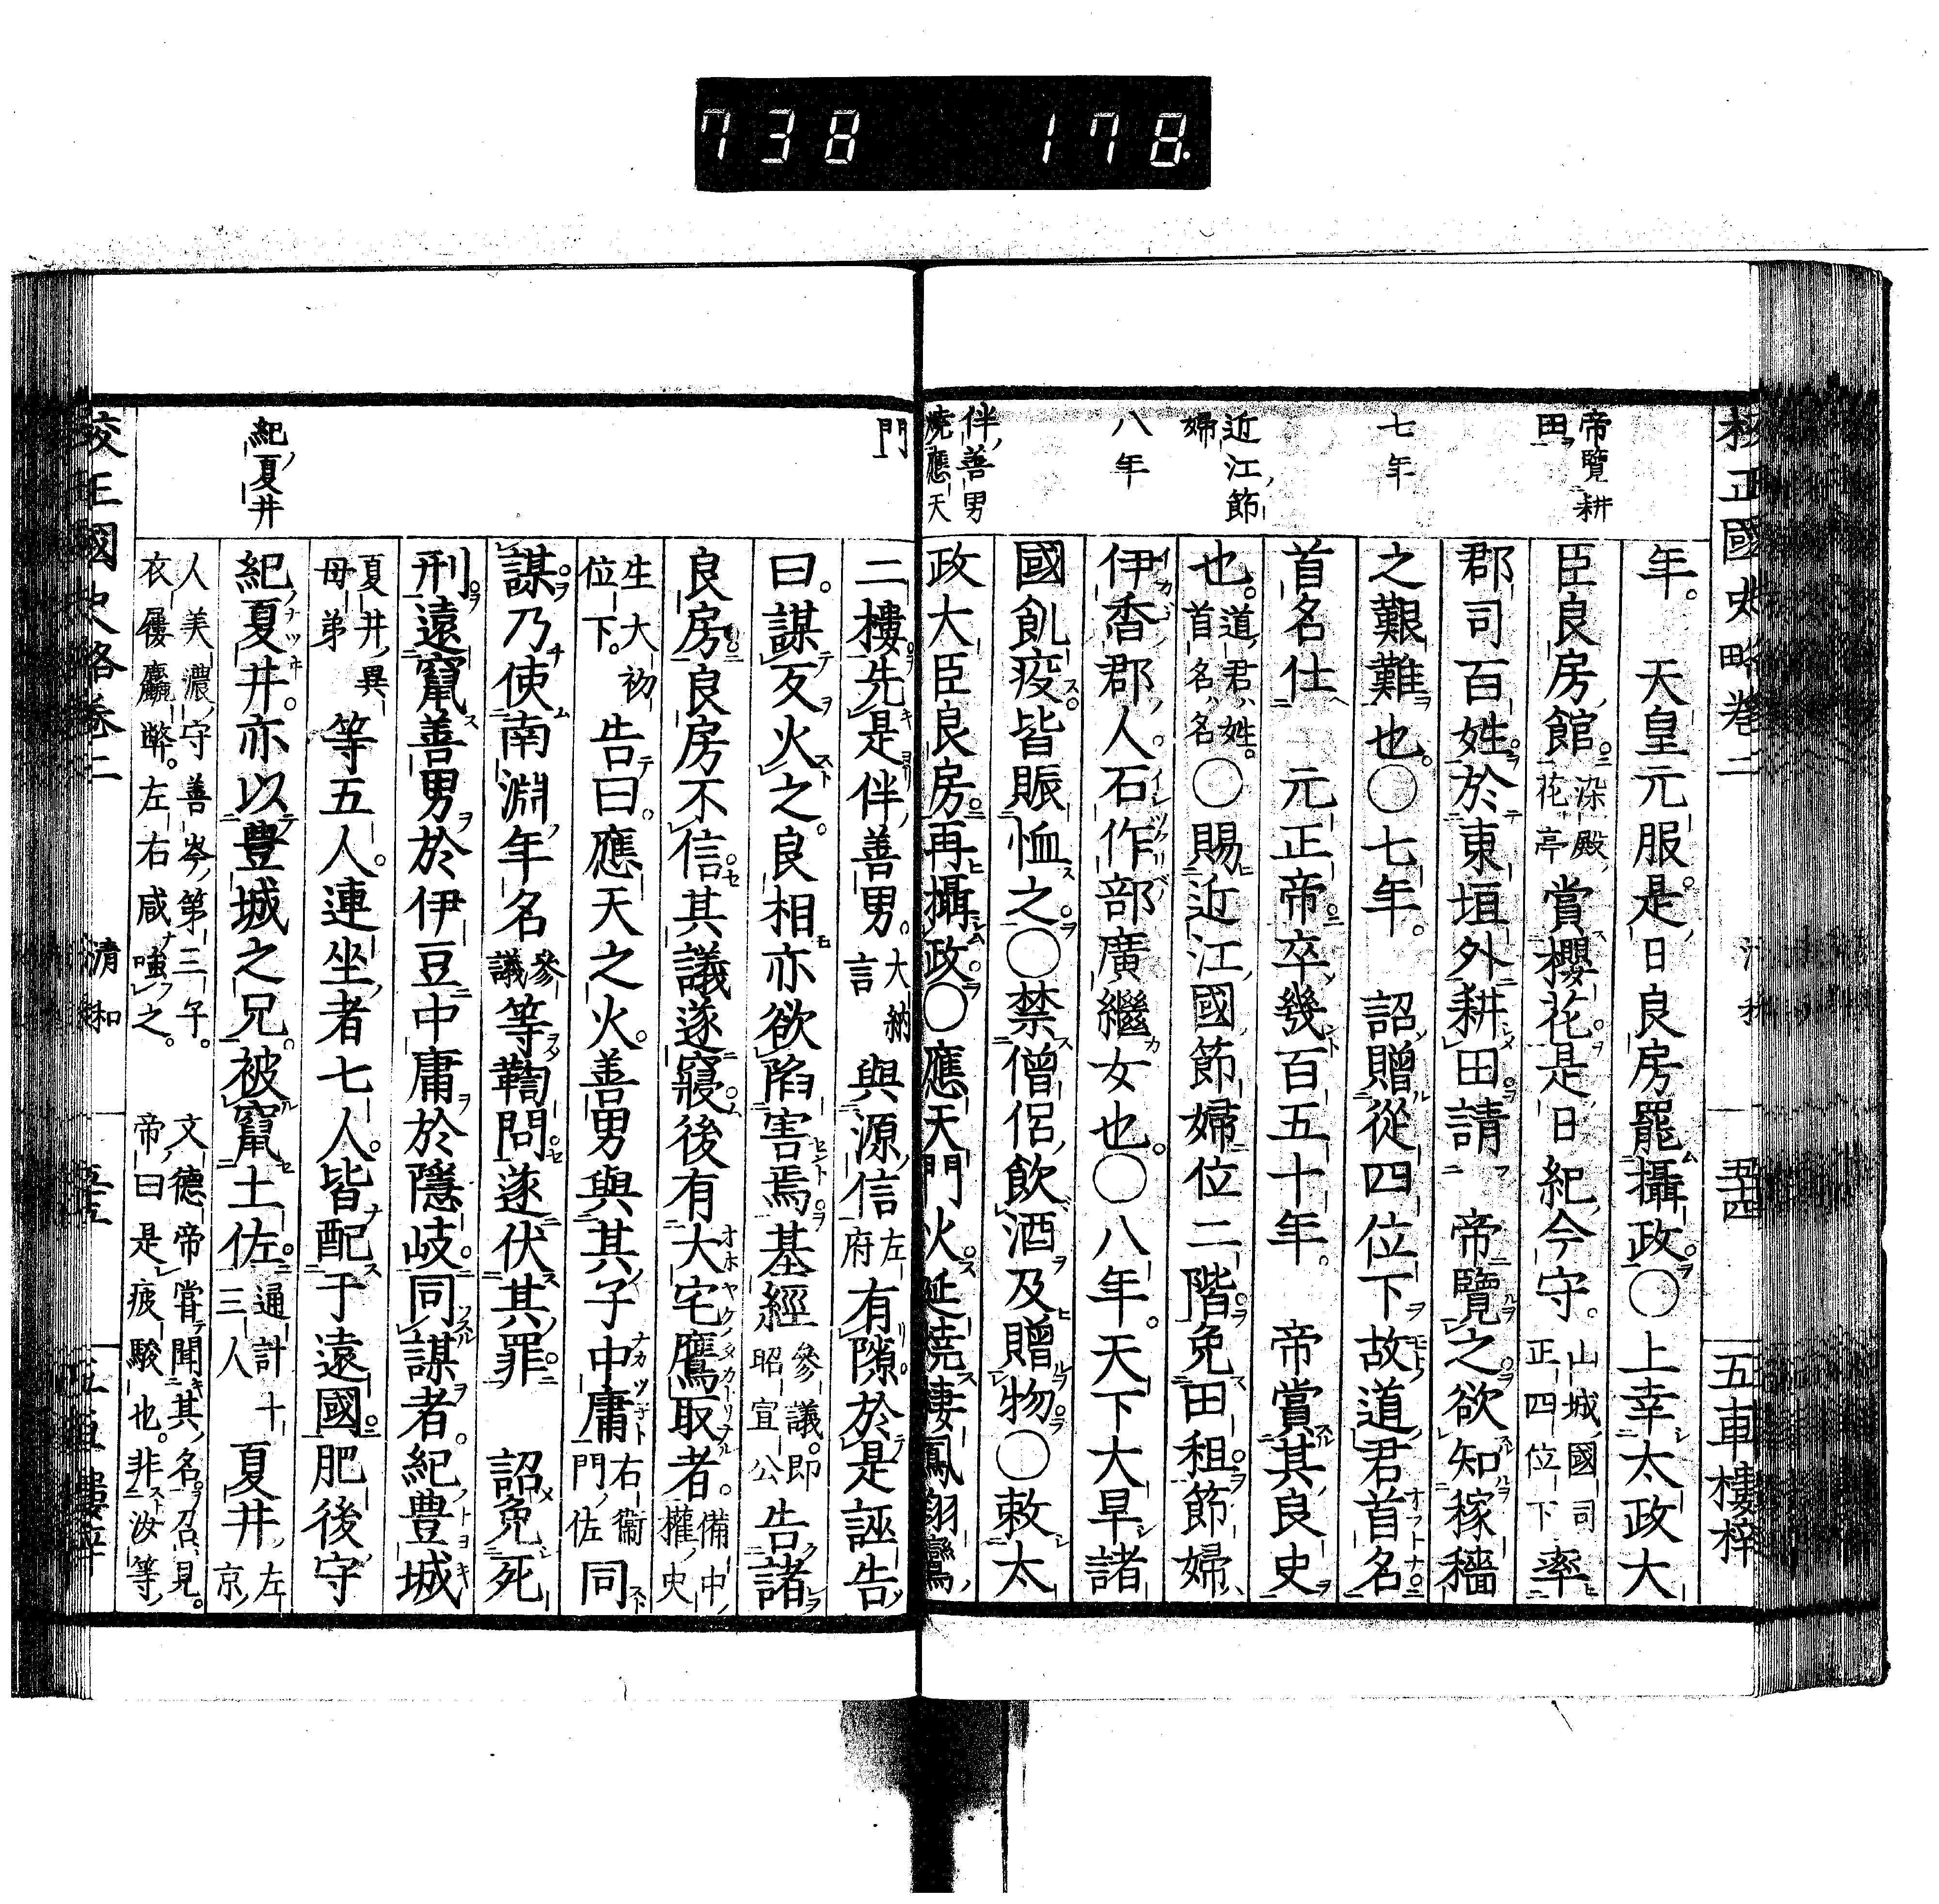 738 178.
校正國史略卷二 五十四 五車樓梓
帝覽耕
田
七年
近江節
婦
八年
伴善男
燒應天
年。 天皇元服是日良房罷攝政○上幸太政大
臣良房館染殿花亭賞櫻花是日紀今守。山城國司正四位下率
郡司百姓於東垣外耕田請 帝覽之欲知稼穡
之艱難也。○七年。 詔贈從四位下故道君首名
首名仕 元正帝卒幾百五十年。 帝賞其良史
也。道君姓。首名名○賜近江國節婦位二階免田租節婦
伊香郡人石作部廣繼女也。○八年。天下大旱諸
國飢疫皆賑恤之○禁僧侶飲酒及贈物○敕太
政大臣良房再攝政○應天門火延燒棲鳳翔鸞
門
紀夏井
二樓先是伴善男。大納言與源信左府有隙於是誣告
曰。謀反火之。良相亦欲陷害焉基經參議。即昭宣公告諸
良房良房不信其議遂寢後有大宅鷹取者。備中權史
生大初位下。告曰。應天之火。善男與其子中庸右衞門佐同
謀乃使南淵年名參議等鞫問遂伏其罪 詔免死
刑遠竄善男於伊豆中庸於隱岐同謀者。紀豊城
夏井異母弟等五人。連坐者七人。皆配于遠國肥後守
紀夏井。亦以豊城之兄。被竄土佐。通計十三人夏井左京
人美濃守善岑第三子。文德帝嘗聞其名召見。
衣履麤弊。左右咸嗤之。帝曰是疲駿也。非汝等
校正國史略卷二 清和 五十五 五車樓梓